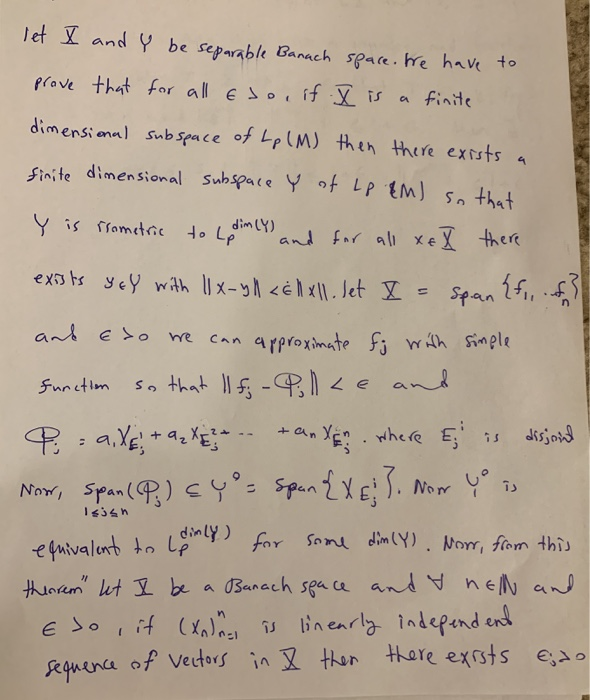 let X and Y be separable Banach space. We have to
prove that for all ε > 0, if X is a finite
dimensional subspace of Lp(M) then there exists a
finite dimensional subspace Y of Lp(M) so that
Y is isometric to Lp^dim(Y) and for all x ∈ X there
exists y ∈ Y with ||x-y|| < ε||x||. let X = span {f1, .. fn}
and ε > 0 we can approximate fj with simple
function so that ||fj - φj|| < ε and
φj = a1 χ_{Ej^1} + a2 χ_{Ej^2} + -- + an χ_{Ej^n}. where Ej^i is disjoint
Now, span(φj) ⊆ Y° = span {χ_{Ej^i}}. Now Y° is
1≤j≤n
equivalent to Lp^dim(Y) for some dim(Y). Now, from this
theorem" let X be a Banach space and ∀ n ∈ N and
ε > 0, if (xn)_{n=1}^n is linearly independent
sequence of vectors in X then there exists εi > 0